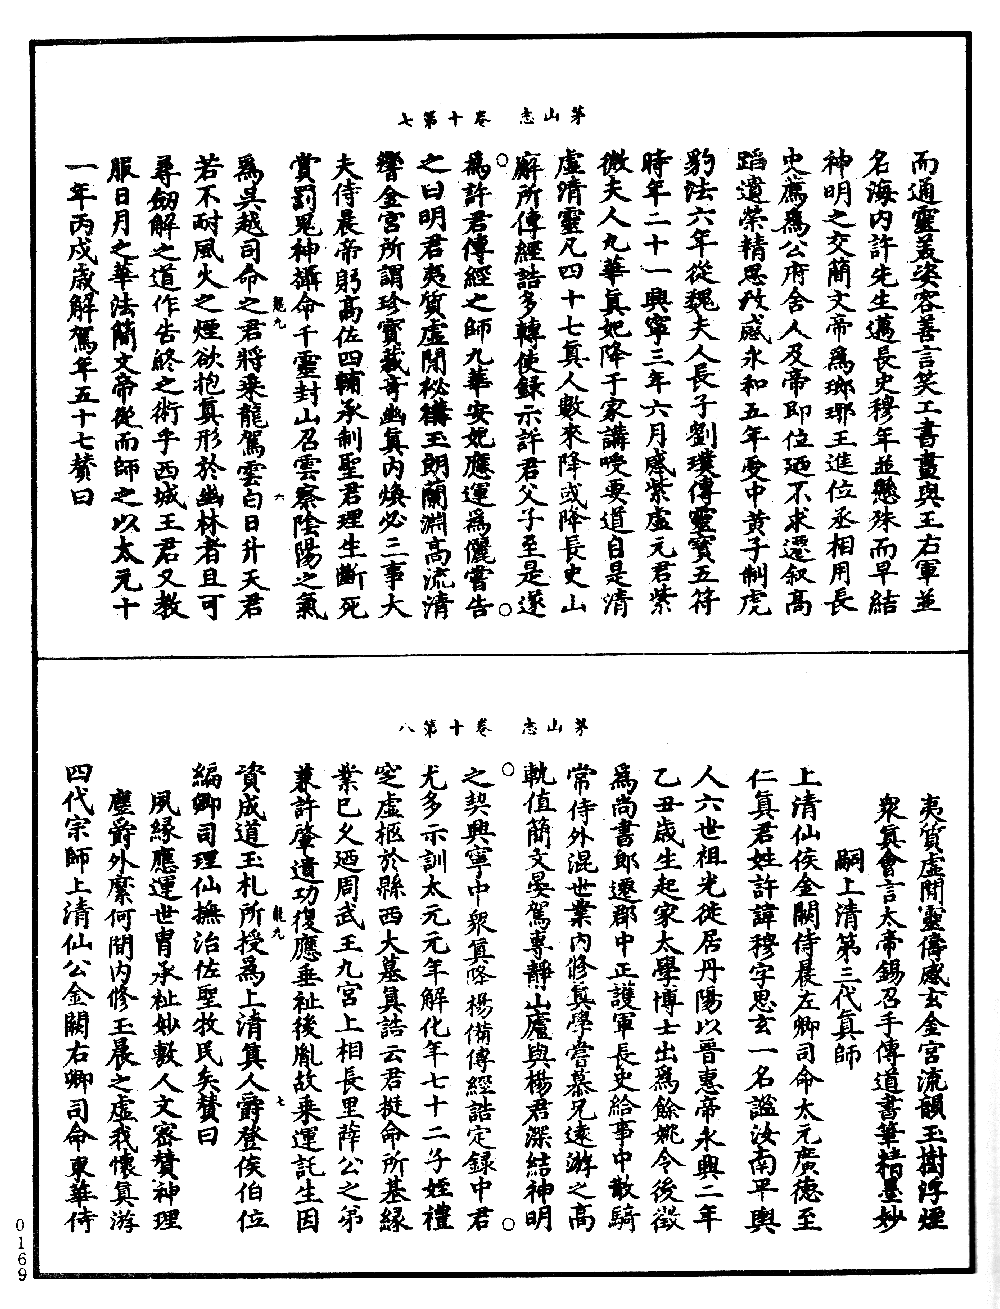 茅山志　卷十第七
而通靈美姿容善言笑工書畫與王右軍並
名海内許先生邁長史穆年並懸殊而早結
神明之交簡文帝爲瑯琊王進位丞相用長
史薦爲公府舍人及帝即位廼不求遷叙高
蹈遺榮精思致感永和五年受中黄子制虎
豹法六年從魏夫人長子劉璞傳靈寳五符
時年二十一興寧三年六月感紫虛元君紫
微夫人九華真妃降于家講受要道自是清
虛清靈凡四十七真人數來降或降長史山
廨所傳經誥多轉使録示許君父子至是遂
爲許君傳經之師九華安妃應運爲儷嘗告
之曰明君夷質虛閒秘構玉朗蘭淵高流清
響金宮所謂珍寳藏奇幽真内焕必三事大
夫侍晨帝躬高佐四輔承制聖君理生斷死
賞罰鬼神攝命千靈封山召雲察陰陽之氣
龍九
六
爲吳越司命之君將乘龍駕雲白日升天君
若不耐風火之煙欲抱真形於幽林者且可
尋劒解之道作告終之術乎西城王君又教
服日月之華法簡文帝從而師之以太元十
一年丙戌歲解駕年五十七贊曰
茅山志　卷十第八
夷質虛閒靈儔感玄金宮流韻玉樹浮煙
衆真會言太帝錫召手傳道書筆精墨妙
嗣上清第三代真師
上清仙侯金闕侍晨左卿司命太元廣德至
仁真君姓許諱穆字思玄一名謐汝南平輿
人六世祖光徙居丹陽以晉惠帝永興二年
乙丑歲生起家太學博士出爲餘姚令後徵
爲尚書郎遷郡中正護軍長史給事中散騎
常侍外混世業内修真學嘗慕兄遠游之高
軌值簡文晏駕專靜山廬與楊君深結神明
之契興寧中衆真降楊備傳經誥定録中君
尤多示訓太元元年解化年七十二子姪禮
窆虛柩於縣西大墓真誥云君挺命所基緣
業已久廼周武王九宮上相長里薛公之弟
兼許肇遺功復應垂祉後胤故乘運託生因
龍九
七
資成道玉札所授爲上清真人爵登侯伯位
編卿司理仙撫治佐聖牧民矣贊曰
夙緣應運世胄承祉妙敷人文密賛神理
塵爵外縻何閒内修玉晨之虛我懷真游
四代宗師上清仙公金闕右卿司命東華侍
0169